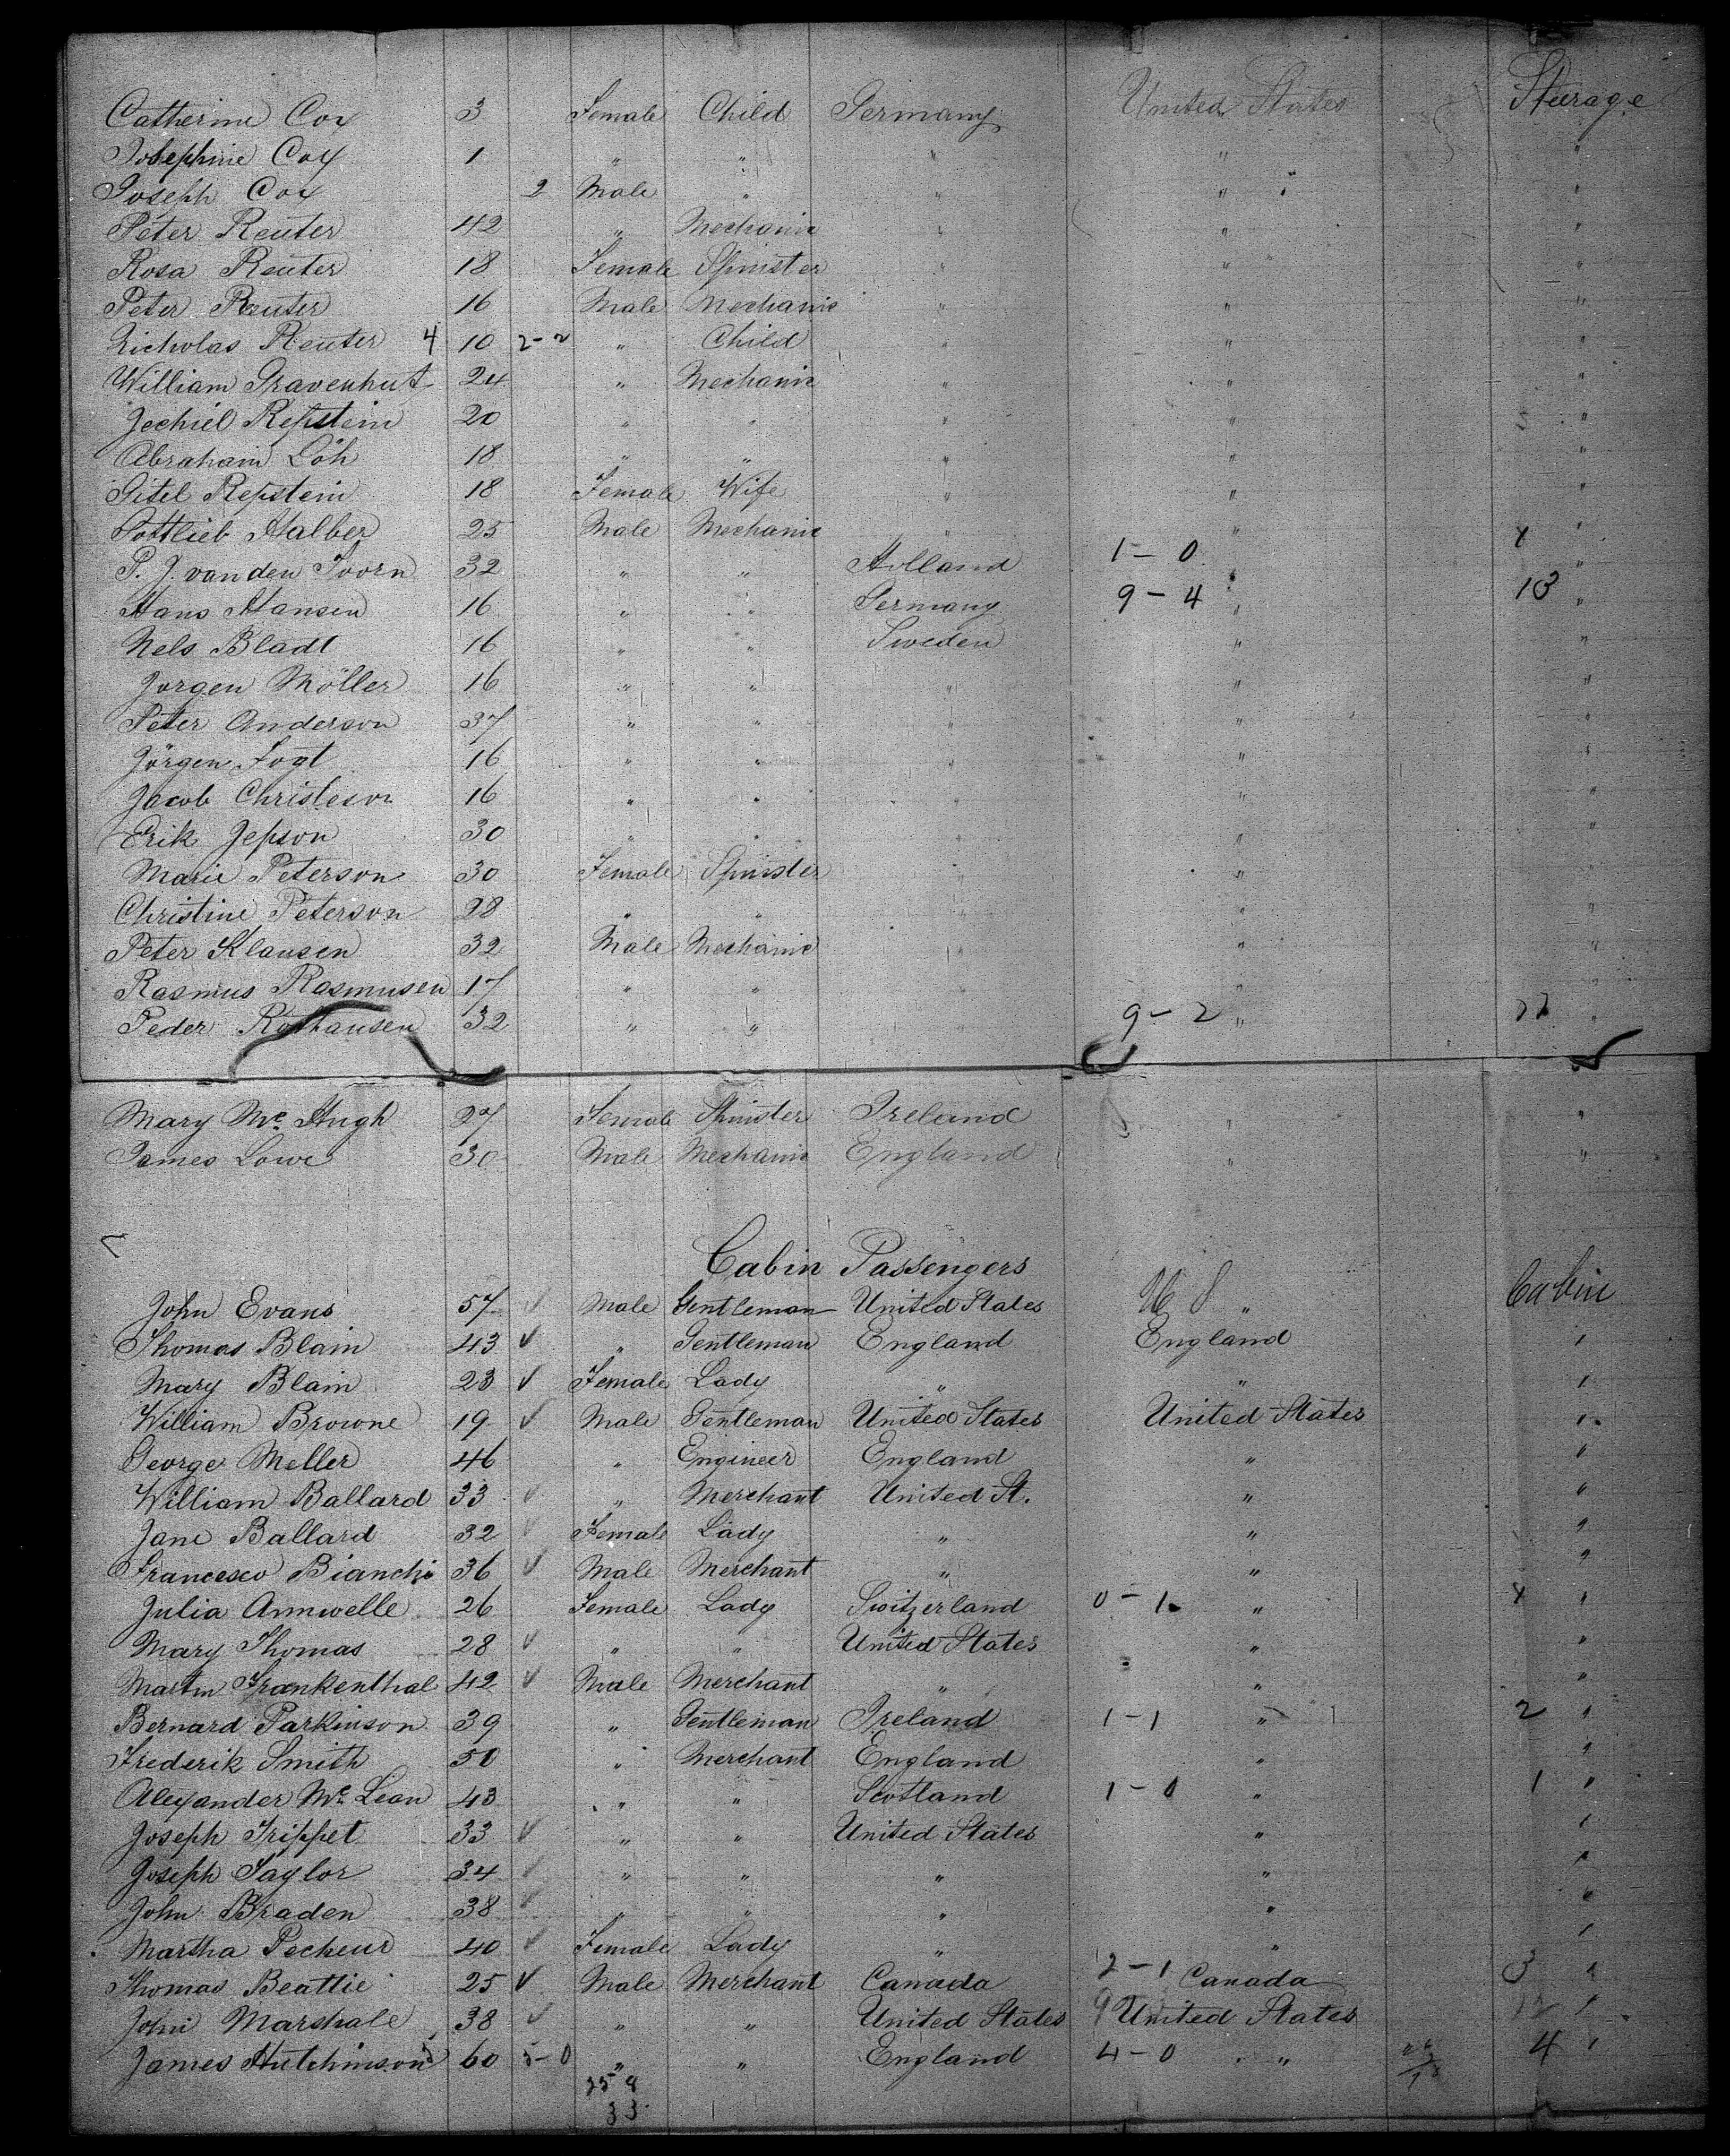 Catherine Cox 3 Female Child Germany United States Steerage
Josephine Cox 1 " " " " "
Joseph Cox 2 Male " " " "
Peter Reuter 42 " Mechanic " " "
Rosa Reuter 18 Female Spinster " " "
Peter Reuter 16 Male Mechanic " " "
Nicholas Reuter 4 10 2-2 " Child " " "
William Gravenhut 24 " Mechanic " " "
Jechiel Repstein 20 " " " " "
Abraham Löh 18 " " " " "
Gitel Repstein 18 Female Wife " " "
Gottlieb Halber 25 Male Mechanic " " "
P. J. van den Toorn 32 " " Holland 1-0 " "
Hans Hansen 16 " " Germany 9-4 " 13 "
Nels Bladt 16 " " Sweden " "
Jorgen Möller 16 " " " " "
Peter Anderson 37 " " " " "
Jörgen Fogt 16 " " " " "
Jacob Christeson 16 " " " " "
Erik Jepson 30 " " " " "
Marie Peterson 30 Female Spinster " " "
Christine Peterson 28 " " " " "
Peter Klausen 32 Male Mechanic " " "
Rasmus Rasmusen 17 " " " " "
Peder 32 " " " 9-2 " "
Mary Mc Hugh 27 Female Spinster Ireland " "
James Lowe 30 Male Mechanic England " "
Cabin Passengers
John Evans 57 ✓ Male Gentleman United States U S " Cabin
Thomas Blain 43 ✓ " Gentleman England England "
Mary Blain 23 ✓ Female Lady " " "
William Browne 19 ✓ Male Gentleman United States United States "
George Meller 46 " Engineer England " "
William Ballard 33 ✓ " Merchant United St. " "
Jane Ballard 32 ✓ Female Lady " " "
Francesco Bianchi 36 ✓ Male Merchant " " "
Julia Annwelle 26 Female Lady Switzerland 0-1 " "
Mary Thomas 28 ✓ " " United States " "
Martin Frankenthal 42 ✓ Male Merchant " " "
Bernard Parkinson 39 " Gentleman Ireland 1-1 " 2 "
Frederik Smith 50 " Merchant England " "
Alexander Mc Lean 43 " " Scotland 1-0 " 1 "
Joseph Trippet 33 ✓ " " United States " "
Joseph Taylor 34 ✓ " " " " "
John Braden 38 ✓ " " " " "
Martha Pecheur 40 ✓ Female Lady " " "
Thomas Beattie 25 ✓ Male Merchant Canada 2-1 Canada 3 "
John Marshale 38 ✓ " " United States 9 United States 12 "
James Hutchinson 5 60 5-0 " " England 4-0 " 4 "
25 8
33